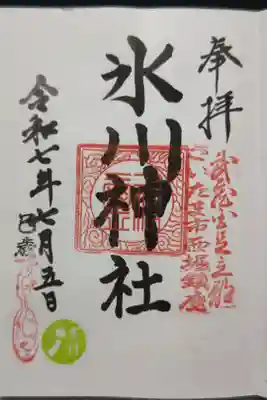 奉拝
武蔵国足立郡
さいたま市西堀鎮座
氷川神社
令和七年七月五日